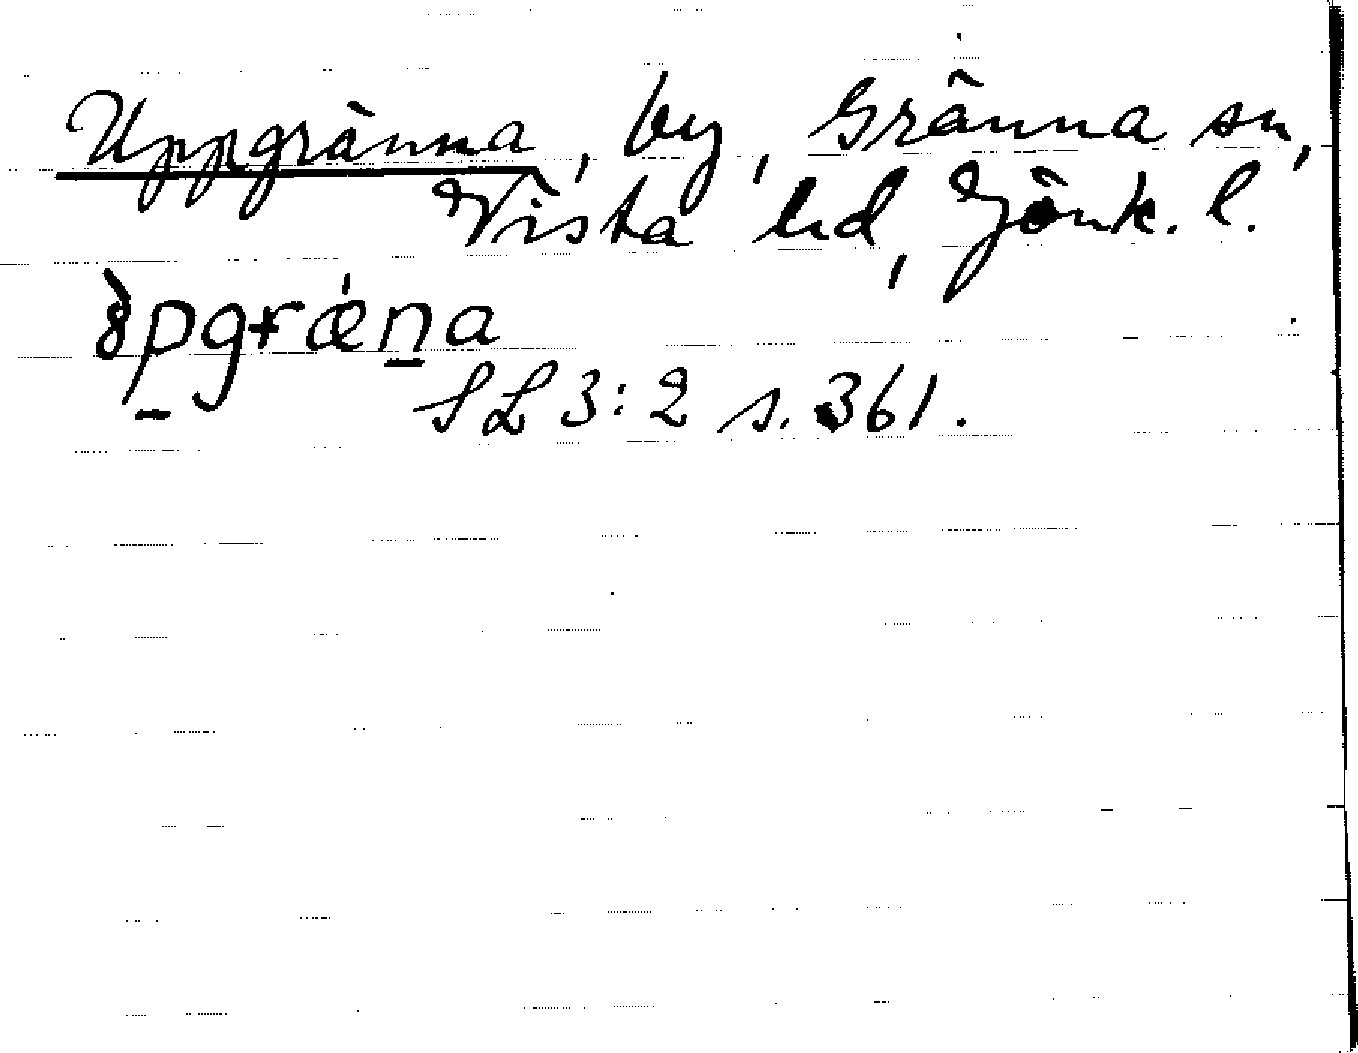 Uppgränna, by, Gränna sn,
Vista hd, Jönk. l.
SL 3:2 s. 361.